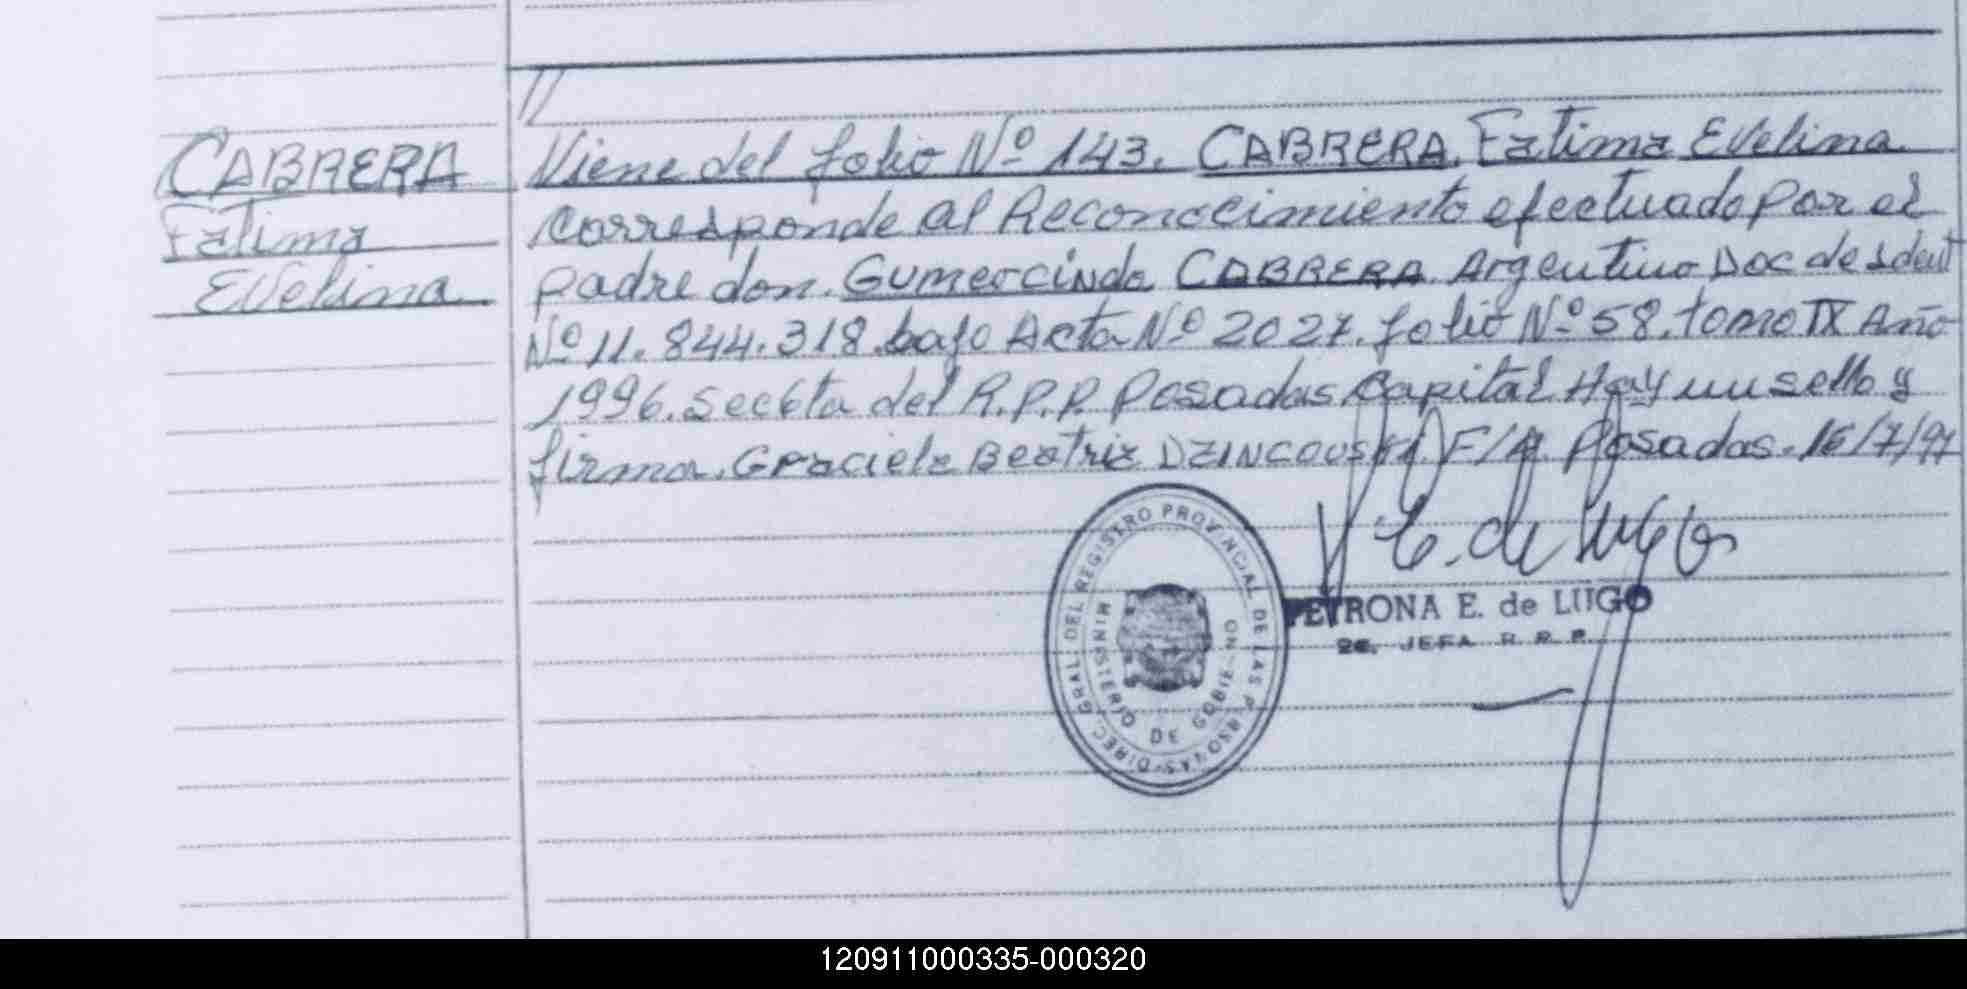 CABRERA
Fatima
Evelina
//
Viene del folio Nº 143. CABRERA. Fatima Evelina.
corresponde al Reconocimiento efectuado por el
padre don. Gumercindo CABRERA. Argentino Doc de Ident
Nº 11.844.318. bajo Acta Nº 2027. folio Nº 58. tomo IX Año
1996. Secc6ta del R.P.P. Posadas Capital Hay un sello y
firma. Graciela Beatriz DZINCOUSKI. F/A. Posadas. 16/7/97
DIREC. GRAL. DEL REGISTRO PROVINCIAL DE LAS PERSONAS
MINISTERIO DE GOBIERNO
E. de Lugo
PETRONA E. de LUGO
JEFA R. P. P.
120911000335-000320